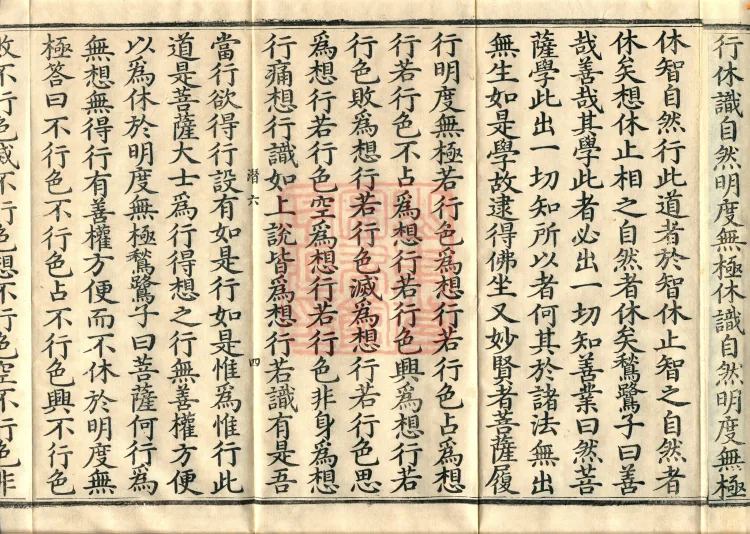 行休識自然明度無極休識自然明度無極
休智自然行此道者於智休止智之自然者
休矣想休止相之自然者休矣鶖鷺子曰善
哉善哉其學此者必出一切知善業曰然菩
薩學此出一切知所以者何其於諸法無出
無生如是學故逮得佛坐又妙賢者菩薩履
行明度無極若行色為想行若行色占為想
行若行色不占為想行若行色興為想行若
行色敗為想行若行色滅為想行若行色思
為想行若行色空為想行若行色非身為想
行痛想行識如上說皆為想行若識有是吾
潛六 四
當行欲得行設有如是行如是惟為惟行此
道是菩薩大士為行得想之行無善權方便
以為休於明度無極鶖鷺子曰菩薩何行為
無想無得行有善權方便而不休於明度無
極答曰不行色不行色占不行色興不行色
敗不行色滅不行色想不行色空不行色非